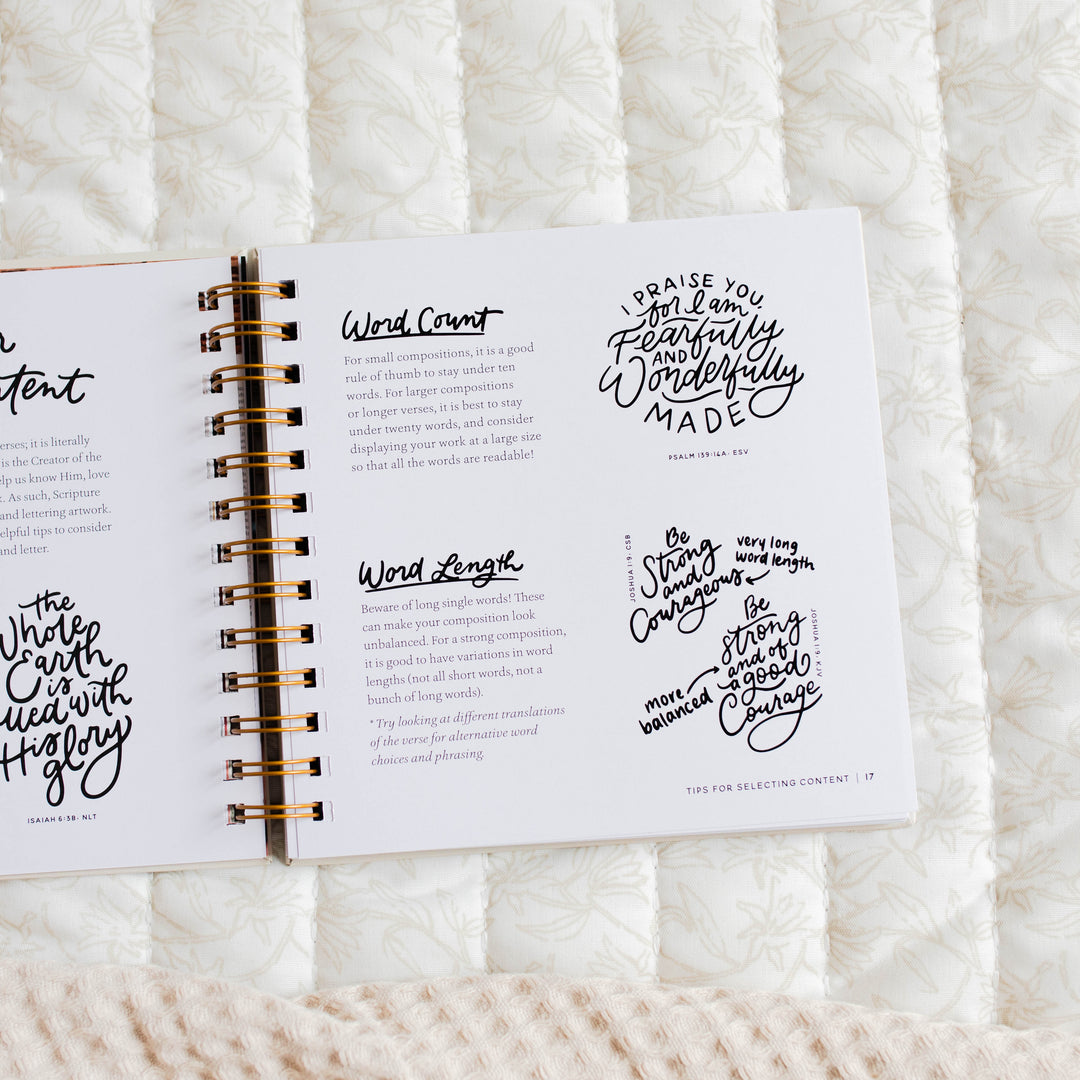 tent
erses; it is literally
is the Creator of the
elp us know Him, love
As such, Scripture
and lettering artwork.
elpful tips to consider
and letter.
the
Whole
Earth
is
with
His
glory
ISAIAH 6:3B- NLT
Word Count
For small compositions, it is a good
rule of thumb to stay under ten
words. For larger compositions
or longer verses, it is best to stay
under twenty words, and consider
displaying your work at a large size
so that all the words are readable!
I PRAISE YOU,
for I am
Fearfully
AND
Wonderfully
MADE
PSALM 139:14A- ESV
Word Length
Beware of long single words! These
can make your composition look
unbalanced. For a strong composition,
it is good to have variations in word
lengths (not all short words, not a
bunch of long words).
* Try looking at different translations
of the verse for alternative word
choices and phrasing.
JOSHUA 1:9- CSB
Be
Strong
and
Courageous
very long
word length
Be
strong
and of
a good
Courage
JOSHUA 1:9- KJV
more
balanced
TIPS FOR SELECTING CONTENT | 17